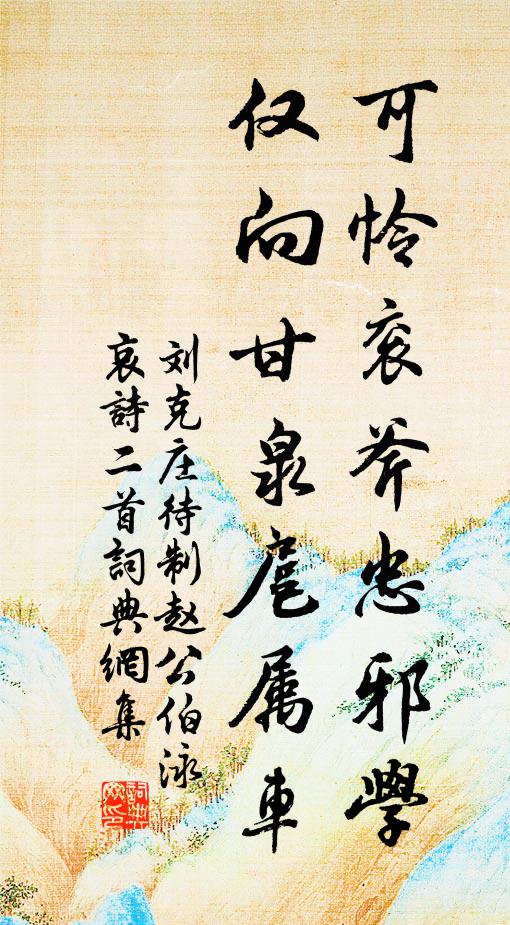 可怜衮斧忠邪學
仅向甘泉扈属车
刘克庄待制赵公伯泳
哀詩二首詞典網集